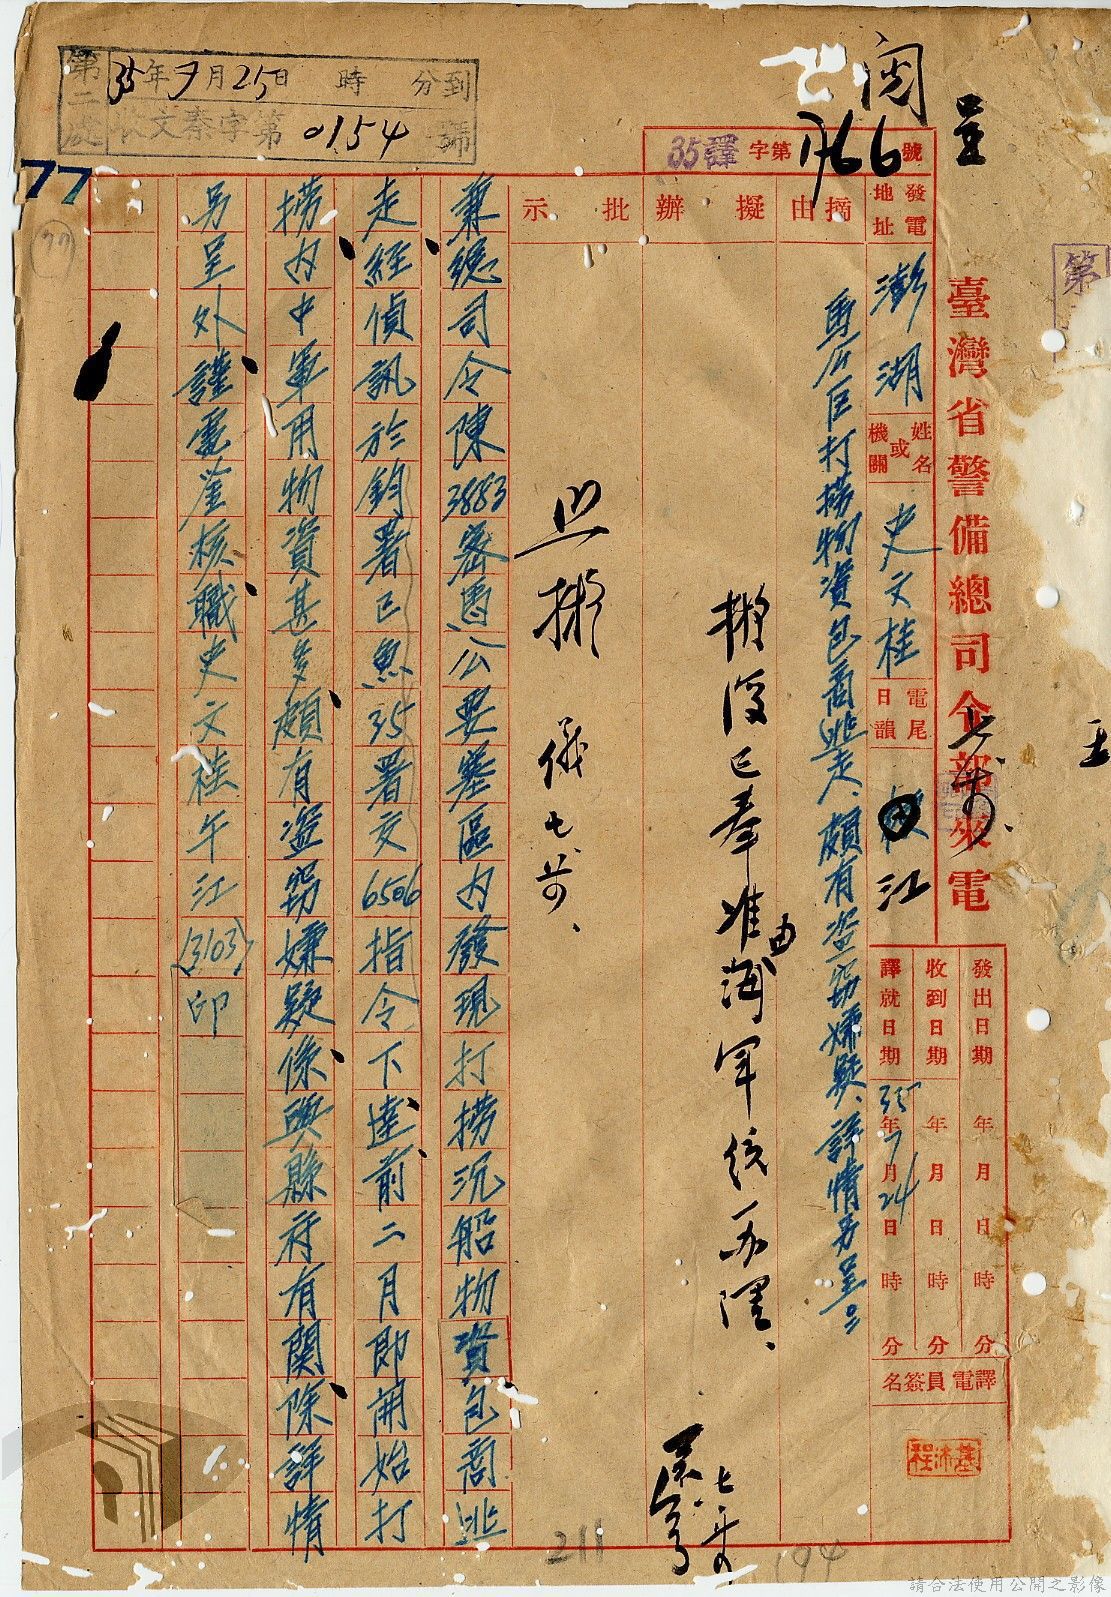 臺灣省警備總司令部來電
閱
呈
35譯字第1766號
發電地址 澎湖
姓名或機關 史文桂
電尾日韻 江
發出日期 年 月 日 時 分
收到日期 年 月 日 時 分
譯就日期 35年7月24日 時 分
譯電員簽名
程沐基
摘由
擬辦
批示
馬公區打撈物資包商逃走、頗有盜竊嫌疑、詳情另呈
擬復已奉准由海軍統一辦理、
照擬 儀 七、廿、
兼總司令陳3883密馬公要塞區內發現打撈沉船物資包商逃
走、經偵訊於鈞署已魚35署交6506指令下達、前二月即開始打
撈、內中軍用物資甚多、頗有盜竊嫌疑係與縣府有關、除詳情
另呈外、謹電鑒核、職史文桂午江(3103)印
第二處
35年7月25日 時 分到
收文秦字第0154號
77
77
第
211
194
請合法使用公開之影像